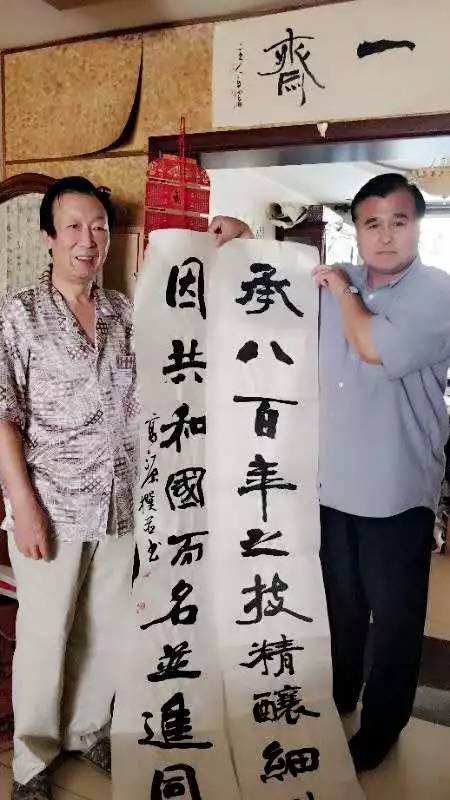 一齋
承八百年之技精釀細
因共和國而名並進同
撰並書